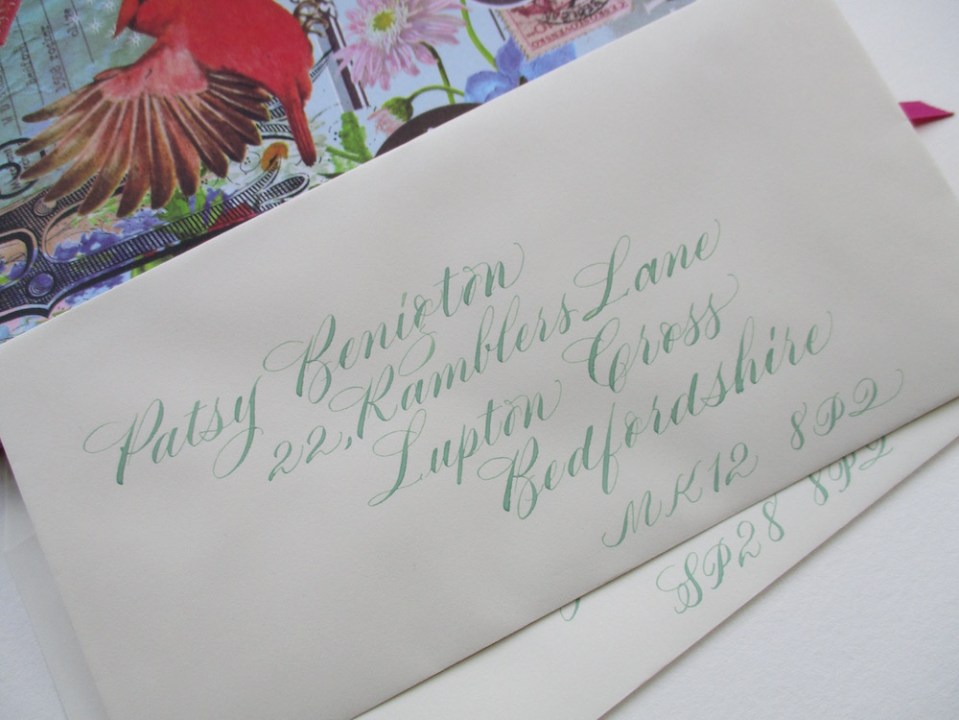 Patsy Benigton
22, Ramblers Lane
Lupton Cross
Bedfordshire
MK12 8P2
SP28 8P2